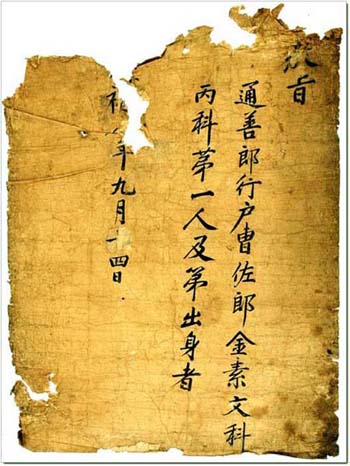 教旨
通善郎行户曺佐郎金素文科
丙科苐一人及苐出身者
年九月十四日